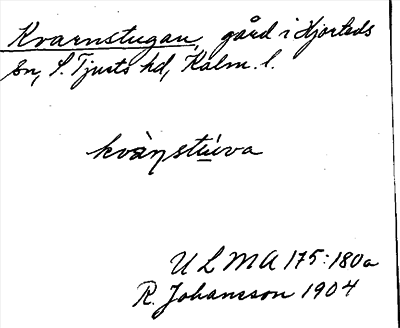 Kvarnstugan, gård i Hjorteds
sn, S. Tjusts hd, Kalm. l.
kvànstúva
ULMA 175:180a
R. Johansson 1904